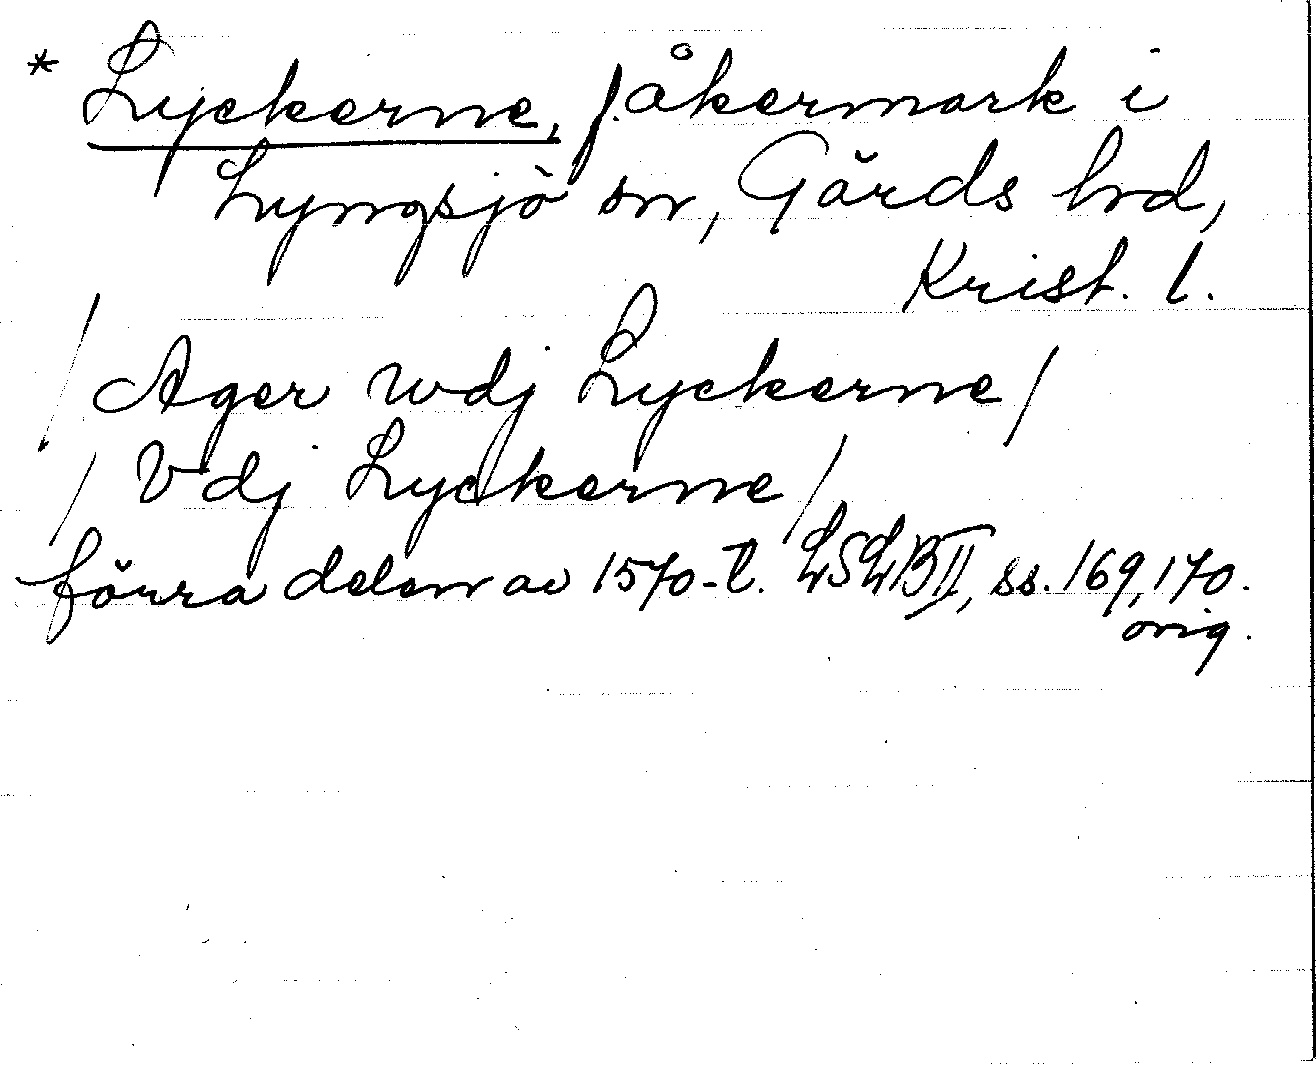 * Lyckerne, f. åkermark i
Lyngsjö sn, Gärds hd,
Krist. l.
/ Ager wdj Lyckerne /
/ Vdj Lyckerne /
förra delen av 1570-t. LSLB II, ss. 169, 170.
orig.